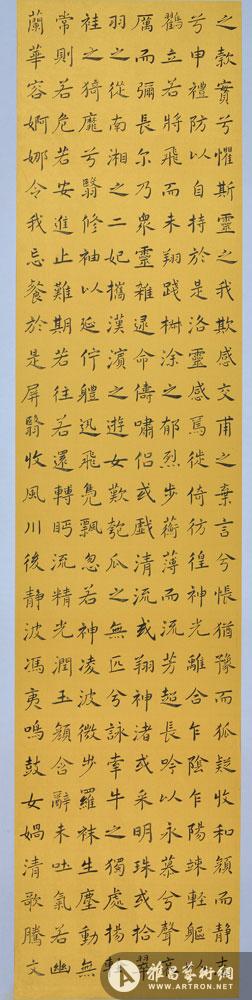 之款實兮懼斯靈之我欺感交甫之棄言兮悵猶豫而狐疑收和顏而靜
兮申禮防以自持於是洛靈感焉徙倚彷徨神光離合乍陰乍陽竦輕軀
鸖立若將飛而未翔踐椒涂之郁烈步蘅薄而流芳超長吟以永慕兮聲
厲而彌長尔乃眾靈雜遝命儔嘯侶或戲清流或翔神渚或采明珠或拾翠
羽之從南湘之二妃攜漢濱之遊女歎匏瓜之無匹兮詠牽牛之獨處揚輕
袿之猗靡兮翳修袖以延佇體迅飛鳧飄忽若神凌波微步羅袜生塵動無
常則若危若安進止難期若往若還轉眄流精光潤玉顏含辭未吐氣若幽
蘭華容婀娜令我忘餐於是屏翳收風川後靜波馮夷鳴鼓女媧清歌騰文
雅昌藝術網
WWW.ARTRON.NET